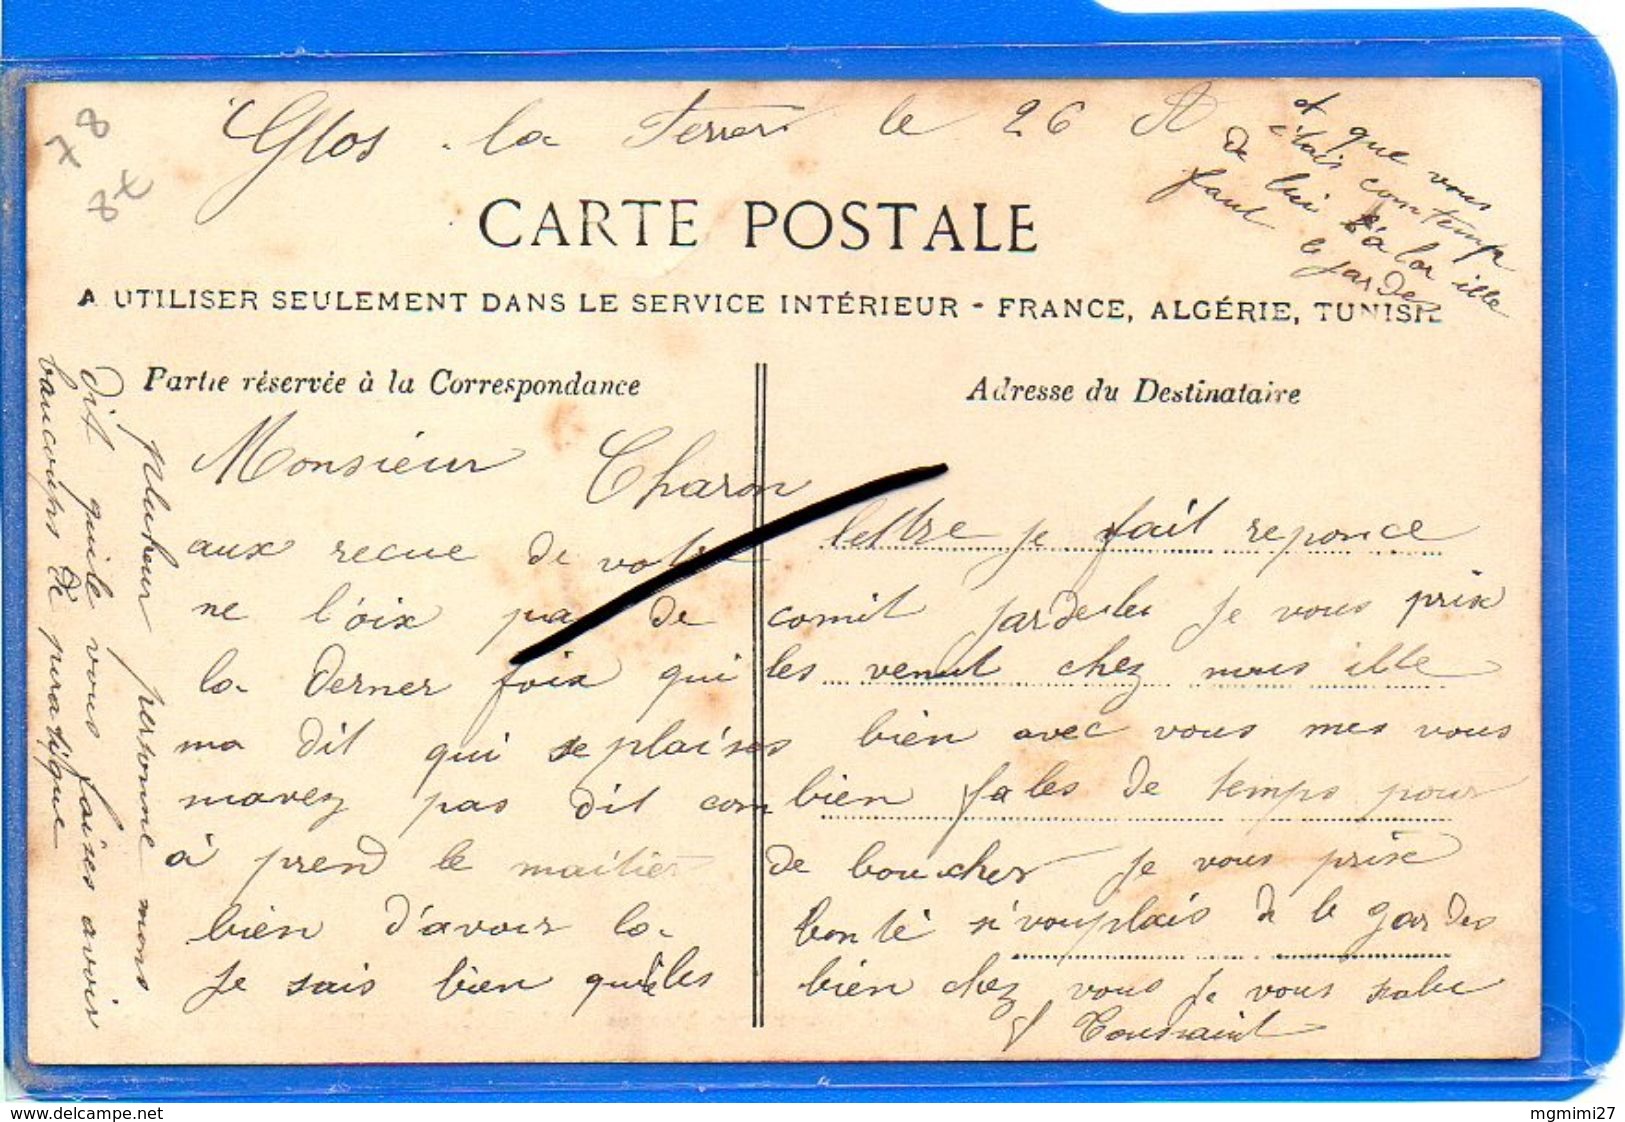 78
8€
Glos la Ferrer le 26 A
CARTE POSTALE
A UTILISER SEULEMENT DANS LE SERVICE INTÉRIEUR - FRANCE, ALGÉRIE, TUNISIE
Partie réservée à la Correspondance
Adresse du Destinataire
Monsieur Charon
aux recue de votre lettre je fait reponce
ne l'oix pa de comit jardeler je vous prix
la derner foix qui les venut chez nous ille
ma dit qui se plaises bien avec vous mes vous
mavez pas dit com bien fales de temps pour
à prend le maitier de boucher je vous prise
bien d'avoir la bonté s'vouplais de le gardes
je sais bien quiles bien chez vous je vous salue
J Toussaint
plusieur personne mons
dit quile vous faises avoir
baucoups de pratique
et que vous
êtais comtemp
de lui s'a lor ille
faut le garder
mgmimi27 - delcampe.net